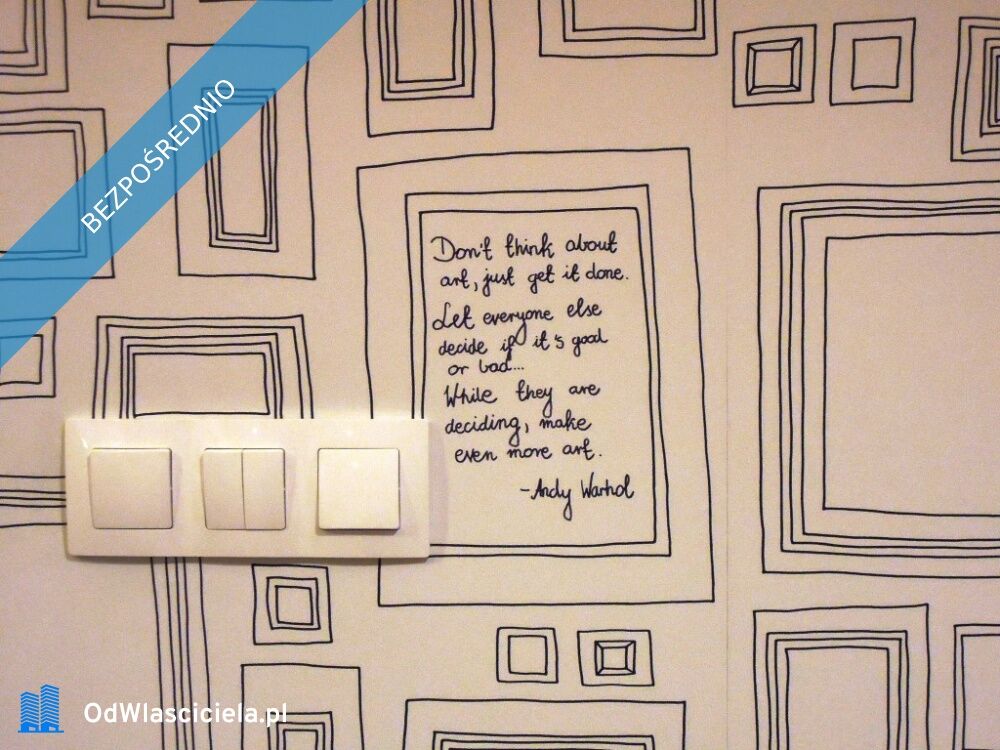 BEZPOŚREDNIO
Don't think about
art, just get it done.
Let everyone else
decide if it's good
or bad...
While they are
deciding, make
even more art.
-Andy Warhol
OdWlasciciela.pl